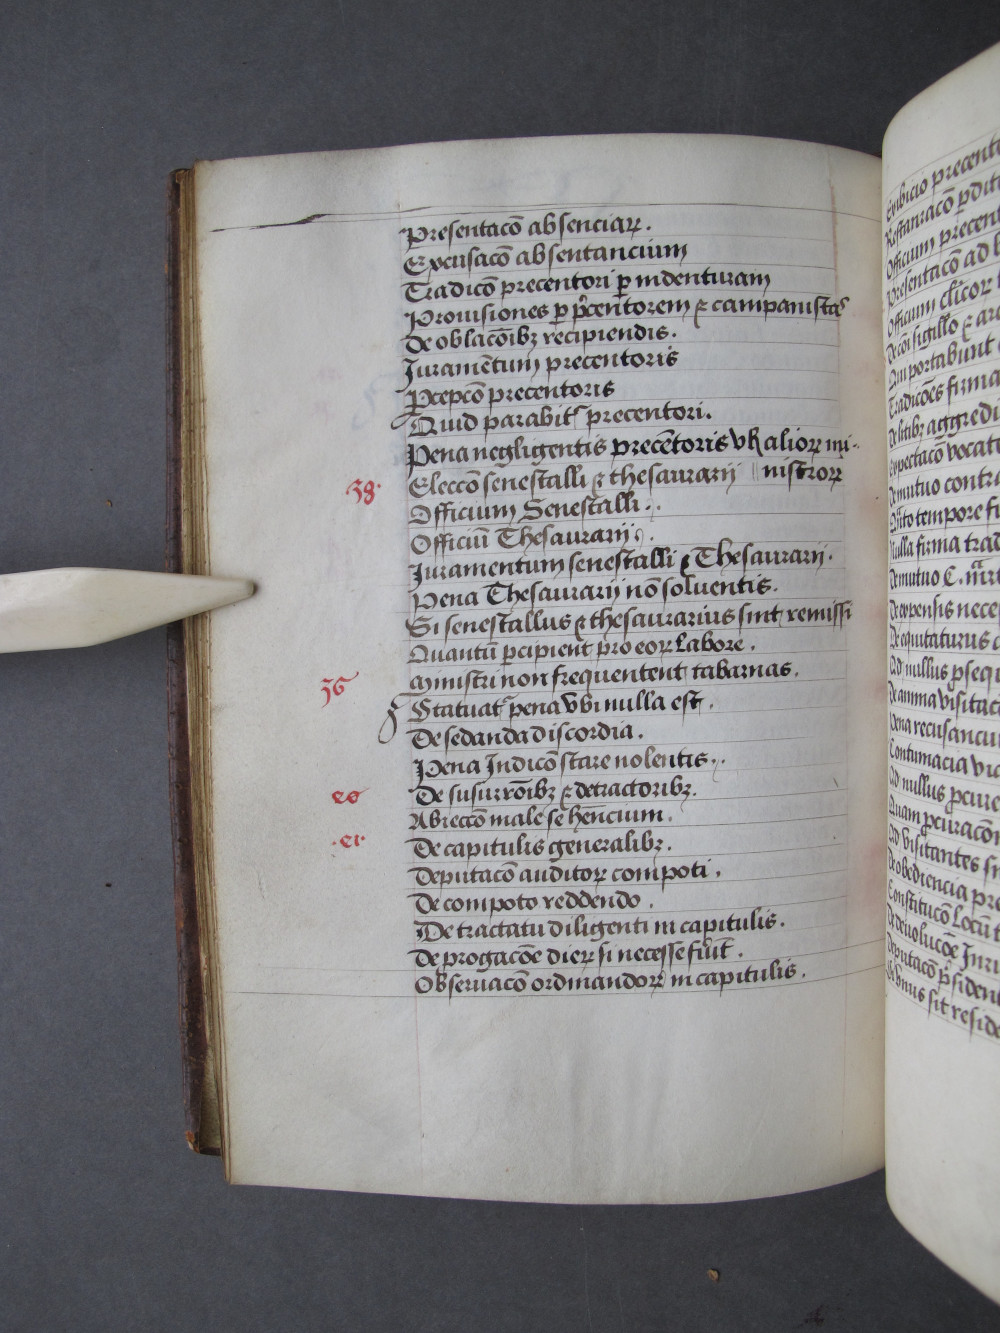 Presentacō absenciaꝝ.
Excusacō absentancium
Tradicō precentori ꝑ indenturam
Prouisiones ꝑ p̄centorem ⁊ campanistā
De oblacōibꝫ recipiendis.
Juramētum precentoris
Ꝑcepcō precentoris
Quid parabit᷑ precentori.
Pena negligentis precētoris vł alioꝝ mi-
38· Eleccō senestalli ⁊ thesaurarij || nistroꝝ
Officium Senestalli..
Officiū Thesaurarij.
Juramentum senestalli ⁊ Thesaurarij.
Pena Thesaurarij nō soluentis.
Si senestallus ⁊ thesaurarius sint remissi
Quantū ꝑcipient pro eoꝝ labore.
36 Ministri non frequentent tabarnas.
Statuat᷑ pena vbi nulla est.
De sedanda discordia.
Pena Indicō stare nolentis.
eo De susurrōibꝫ ⁊ detractoribꝫ.
Abieccō male se hēncium.
·ei· De capitulis generalibꝫ.
Deputacō auditoꝝ compoti.
De compoto reddendo.
De tractatu diligenti in capitulis.
De progacōe dieꝝ si necesse fūit.
Obseruacō ordinandoꝝ in capitulis.
precent
Officium precen
Presentacō ad
Officium cl̄icoꝝ
De cōi sigillo ⁊
Qui portabunt
Tradicōes firma
De litibꝫ aggredi
De mutuo contra
Nulla firma trad
De mutuo C. m̄r
De expensis neces
De equitaturis
Ad nullus ꝓsequ
De amma visitac
Pena recusanciu
Contumacia
Ad nullus ꝓcure
Quam ꝓcuracōn
Ad visitantes
De obediencia pre
Constitucō Locū
De deuolucōe Juri
Deputacō p̄siden
vnus sit reside